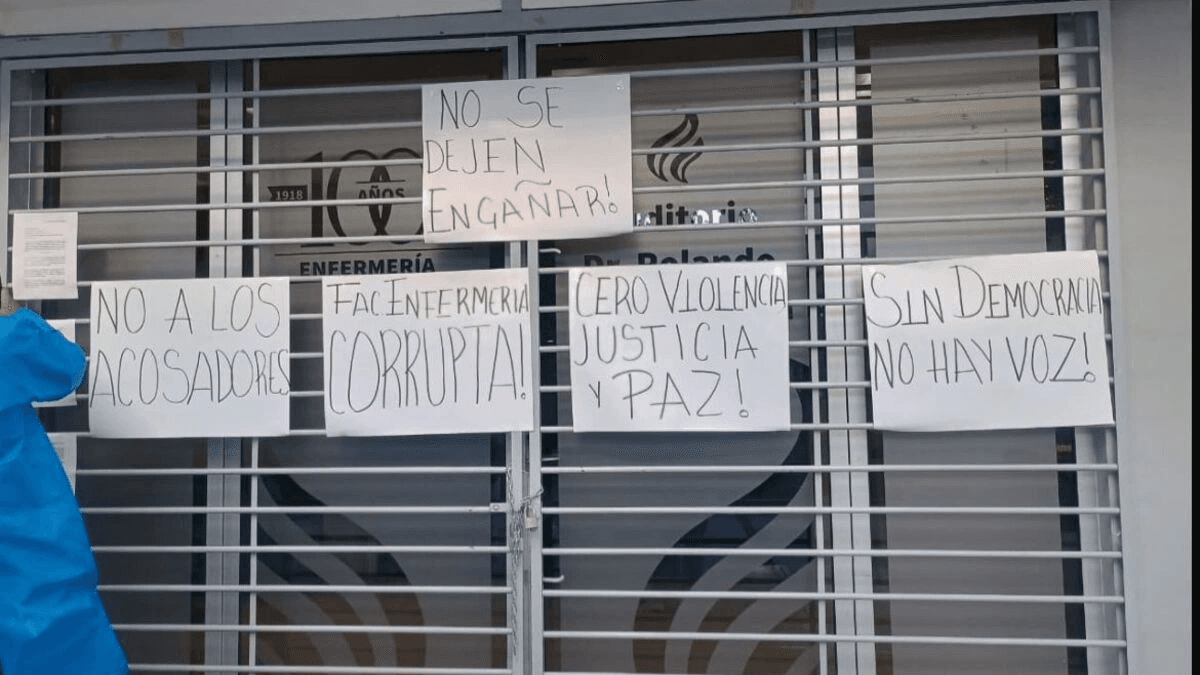 NO SE
DEJEN
ENGAÑAR!
1918
100
AÑOS
ENFERMERÍA
Dr. Rolando
NO A LOS
ACOSADORES
FAC ENFERMERIA
CORRUPTA!
CERO VIOLENCIA,
JUSTICIA
Y PAZ!
SIN DEMOCRACIA
NO HAY VOZ!